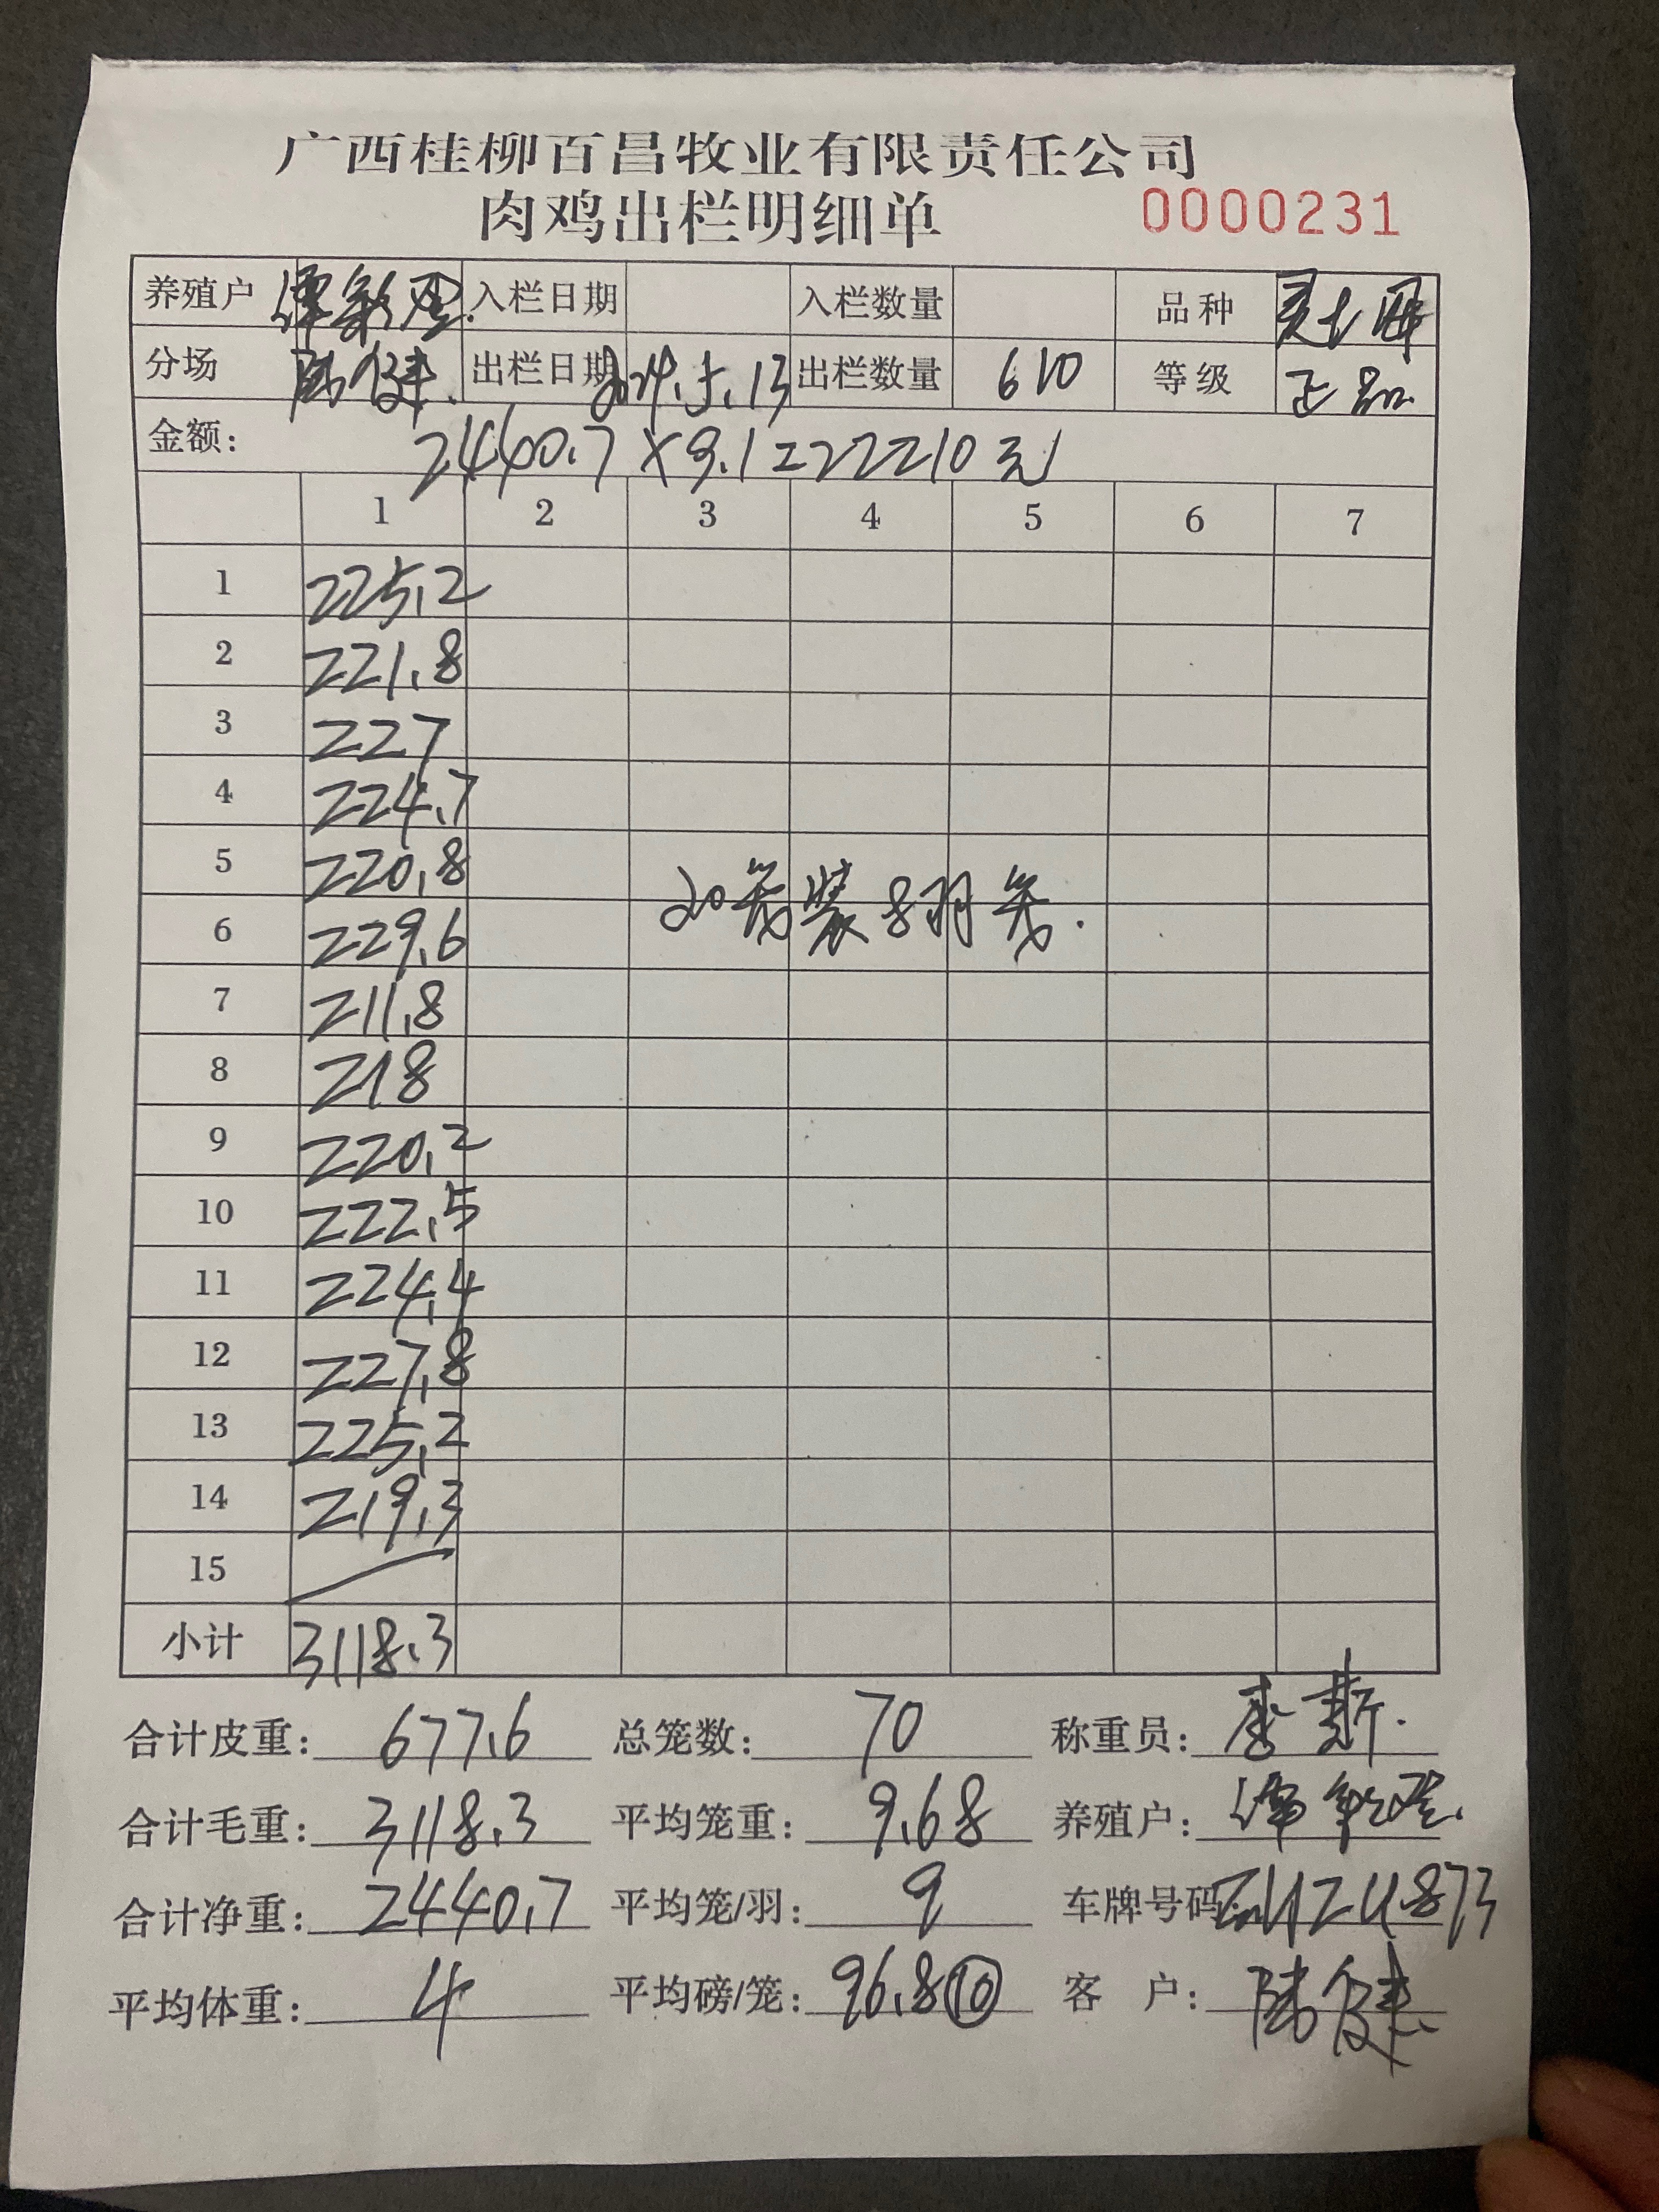 广西桂柳百昌牧业有限责任公司
肉鸡出栏明细单 0000231
养殖户 谭 入栏日期 入栏数量 品种
分场 陆健. 出栏日期 2024.5.13 出栏数量 610 等级 正品
金额: 2440.7×9.1=22210元
1 2 3 4 5 6 7
1 225.2
2 221.8
3 227
4 224.7
5 220.8
6 229.6
7 211.8
8 218
9 220.2
10 222.5
11 224.4
12 227.8
13 225.2
14 219.3
15
20笼装8羽笼.
小计 3118.3
合计皮重: 677.6 总笼数: 70 称重员: 李
合计毛重: 3118.3 平均笼重: 9.68 养殖户: 谭
合计净重: 2440.7 平均笼/羽: 9 车牌号码:
平均体重: 4 平均磅/笼: 96.8⑩ 客 户: 陆健